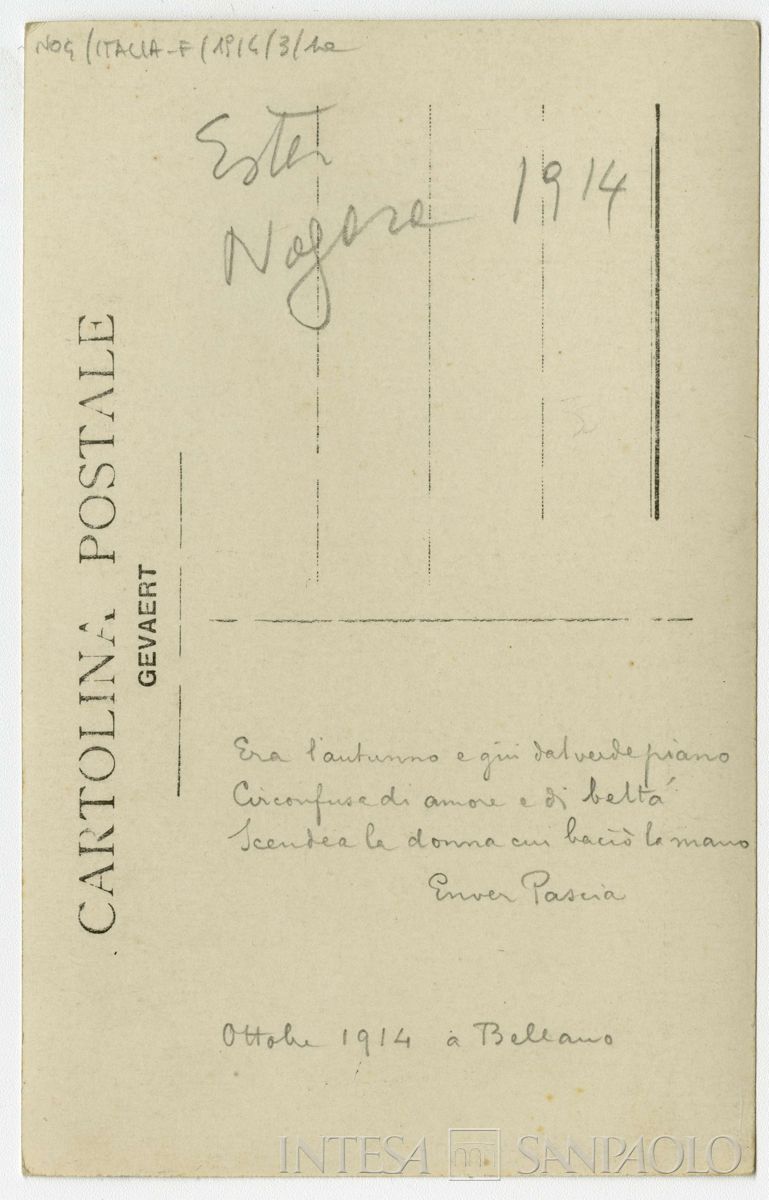 NOG/ITALIA-F/1914/3/12
Ester
Nogara 1914
CARTOLINA POSTALE
GEVAERT
Era l'autunno e giù dal verde piano
Circonfusa di amore e di beltá
Scendea la donna cui baciò la mano
Enver Pascia
Ottobre 1914 a Bellano
INTESA SANPAOLO